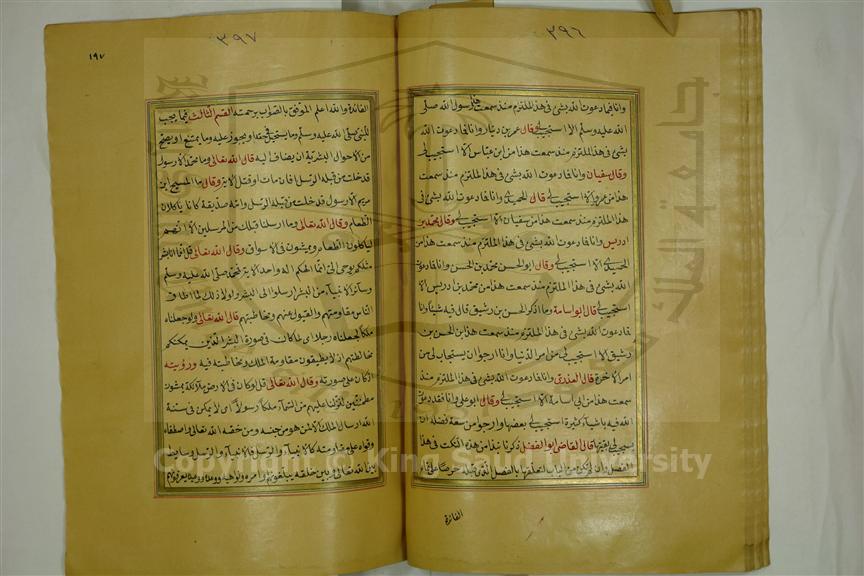 ٣٩٦
وانا فما دعوت الله بشئ في هذا الملتزم منذ سمعت هذا من رسول الله صلى
الله عليه وسلم الا استجيب لي وقال عمرو بن دينار وانا فما دعوت الله
بشئ في هذا الملتزم منذ سمعت هذا من ابن عباس الا استجيب لي
وقال سفيان وانا فما دعوت الله بشئ في هذا الملتزم منذ سمعت
هذا من عمرو الا استجيب لي قال الحميدي وانا فما دعوت الله بشئ في
هذا الملتزم منذ سمعت هذا من سفيان الا استجيب لي وقال محمد بن
ادريس وانا فما دعوت الله بشئ في هذا الملتزم منذ سمعت هذا من
الحميدي الا استجيب لي وقال ابو الحسن محمد بن الحسن وانا فما دعوت
الله بشئ في هذا الملتزم منذ سمعت هذا من محمد بن ادريس الا
استجيب لي قال ابو اسامة وما اذكر الحسن بن رشيق قال فيه شيئا وانا
فما دعوت الله بشئ في هذا الملتزم منذ سمعت هذا من الحسن بن
رشيق الا استجيب لي من امر الدنيا وانا ارجو ان يستجاب لي من
امر الاخرة قال العذري وانا فما دعوت الله بشئ في هذا الملتزم منذ
سمعت هذا من ابي اسامة الا استجيب لي وقال ابو علي وانا فقد دعوت
الله فيه باشياء كثيرة استجيب لي بعضها وارجو من سعة فضله ان
يستجيب لي بقيتها قال القاضي ابو الفضل ذكرنا نبذا من هذه النكت في هذا
الفصل وان لم تكن من الباب لتعلقها بالفصل الذي قبله حرصا على تمام
الفائدة
٣٩٧
١٩٧
الفائدة والله اعلم الموفق بالصواب برحمته القسم الثالث فيما يجب
للنبي صلى الله عليه وسلم وما يستحيل في حقه او يجوز عليه وما يمتنع او يصح
من الاحوال البشرية ان يضاف اليه قال الله تعالى وما محمد الا رسول
قد خلت من قبله الرسل افان مات او قتل الاية وقال ما المسيح ابن
مريم الا رسول قد خلت من قبله الرسل وامه صديقة كانا ياكلان
الطعام وقال الله تعالى وما ارسلنا قبلك من المرسلين الا انهم
لياكلون الطعام ويمشون في الاسواق وقال الله تعالى قل انما انا بشر
مثلكم يوحى الي انما الهكم اله واحد الاية فمحمد صلى الله عليه وسلم
وسائر الانبياء من البشر ارسلوا الى البشر ولولا ذلك لما اطاق
الناس مقاومتهم والقبول عنهم ومخاطبتهم قال الله تعالى ولو جعلناه
ملكا لجعلناه رجلا اي لما كان في صورة البشر الذين يمكنكم
مخالطتهم اذ لا يطيقون مقاومة الملك ومخاطبته فيه ورؤيته
اذ كان على صورته وقال الله تعالى قل لو كان في الارض ملائكة يمشون
مطمئنين لنزلنا عليهم من السماء ملكا رسولا اي لا يمكن في سنة
الله ارسال الملك الا لمن هو من جنسه او من خصه الله تعالى واصطفاه
وقواه على مقاومته كالانبياء والرسل فالانبياء والرسل وسائط
بين الله تعالى وبين خلقه يبلغونهم اوامره ونواهيه ووعده ووعيده
جامعة الملك سعود
1957
Copyright © King Saud University